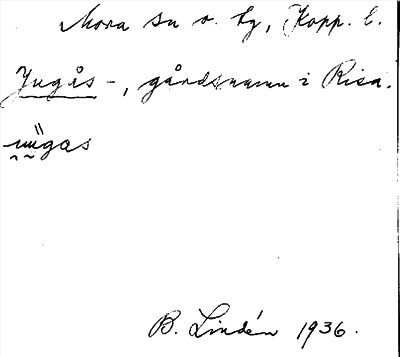 Mora sn o. tg, Kopp. l.
Jugås-, gårdsnamn i Risa.
B. Lindén 1936.